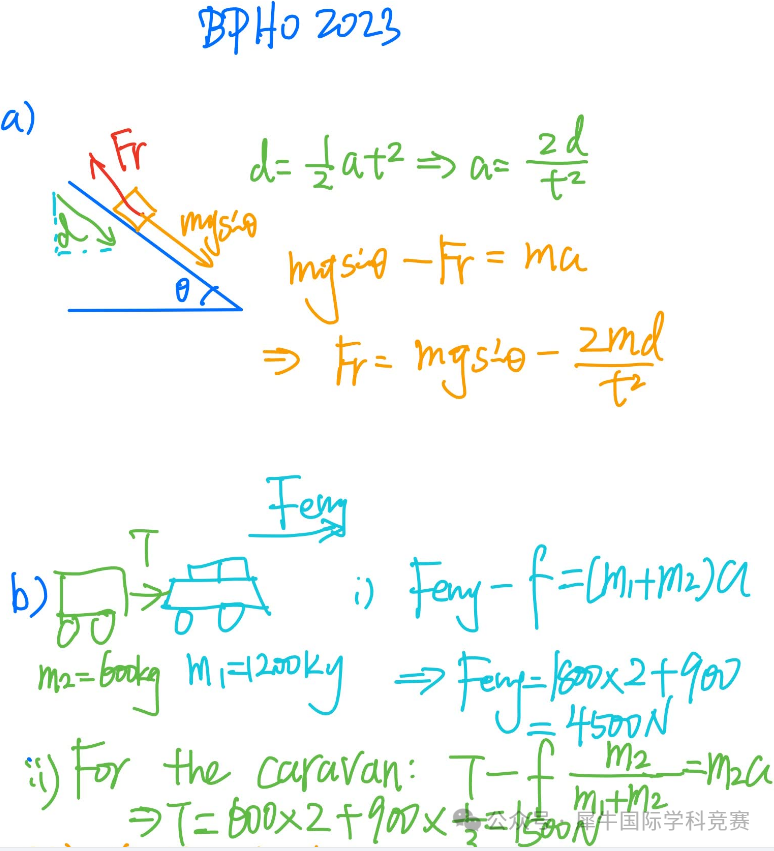 BPHO 2023
a)
Fr
d
mgsinθ
θ
d = 1/2 at² ⇒ a = 2d/t²
mgsinθ - Fr = ma
⇒ Fr = mgsinθ - 2md/t²
b)
T
Feng
m₂=600kg m₁=1200kg
i) Feng - f = (m₁+m₂)a
⇒ Feng = 1800×2+900
= 4500N
ii) For the caravan: T - f m₂/(m₁+m₂) = m₂a
⇒ T = 600×2+900×1/3 = 1500N
公众号：犀牛国际学科竞赛